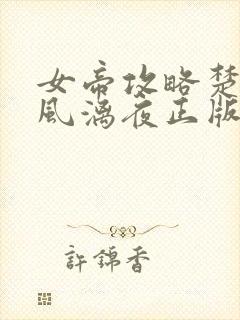 女帝攻略楚
風漓夜正版
許錦香